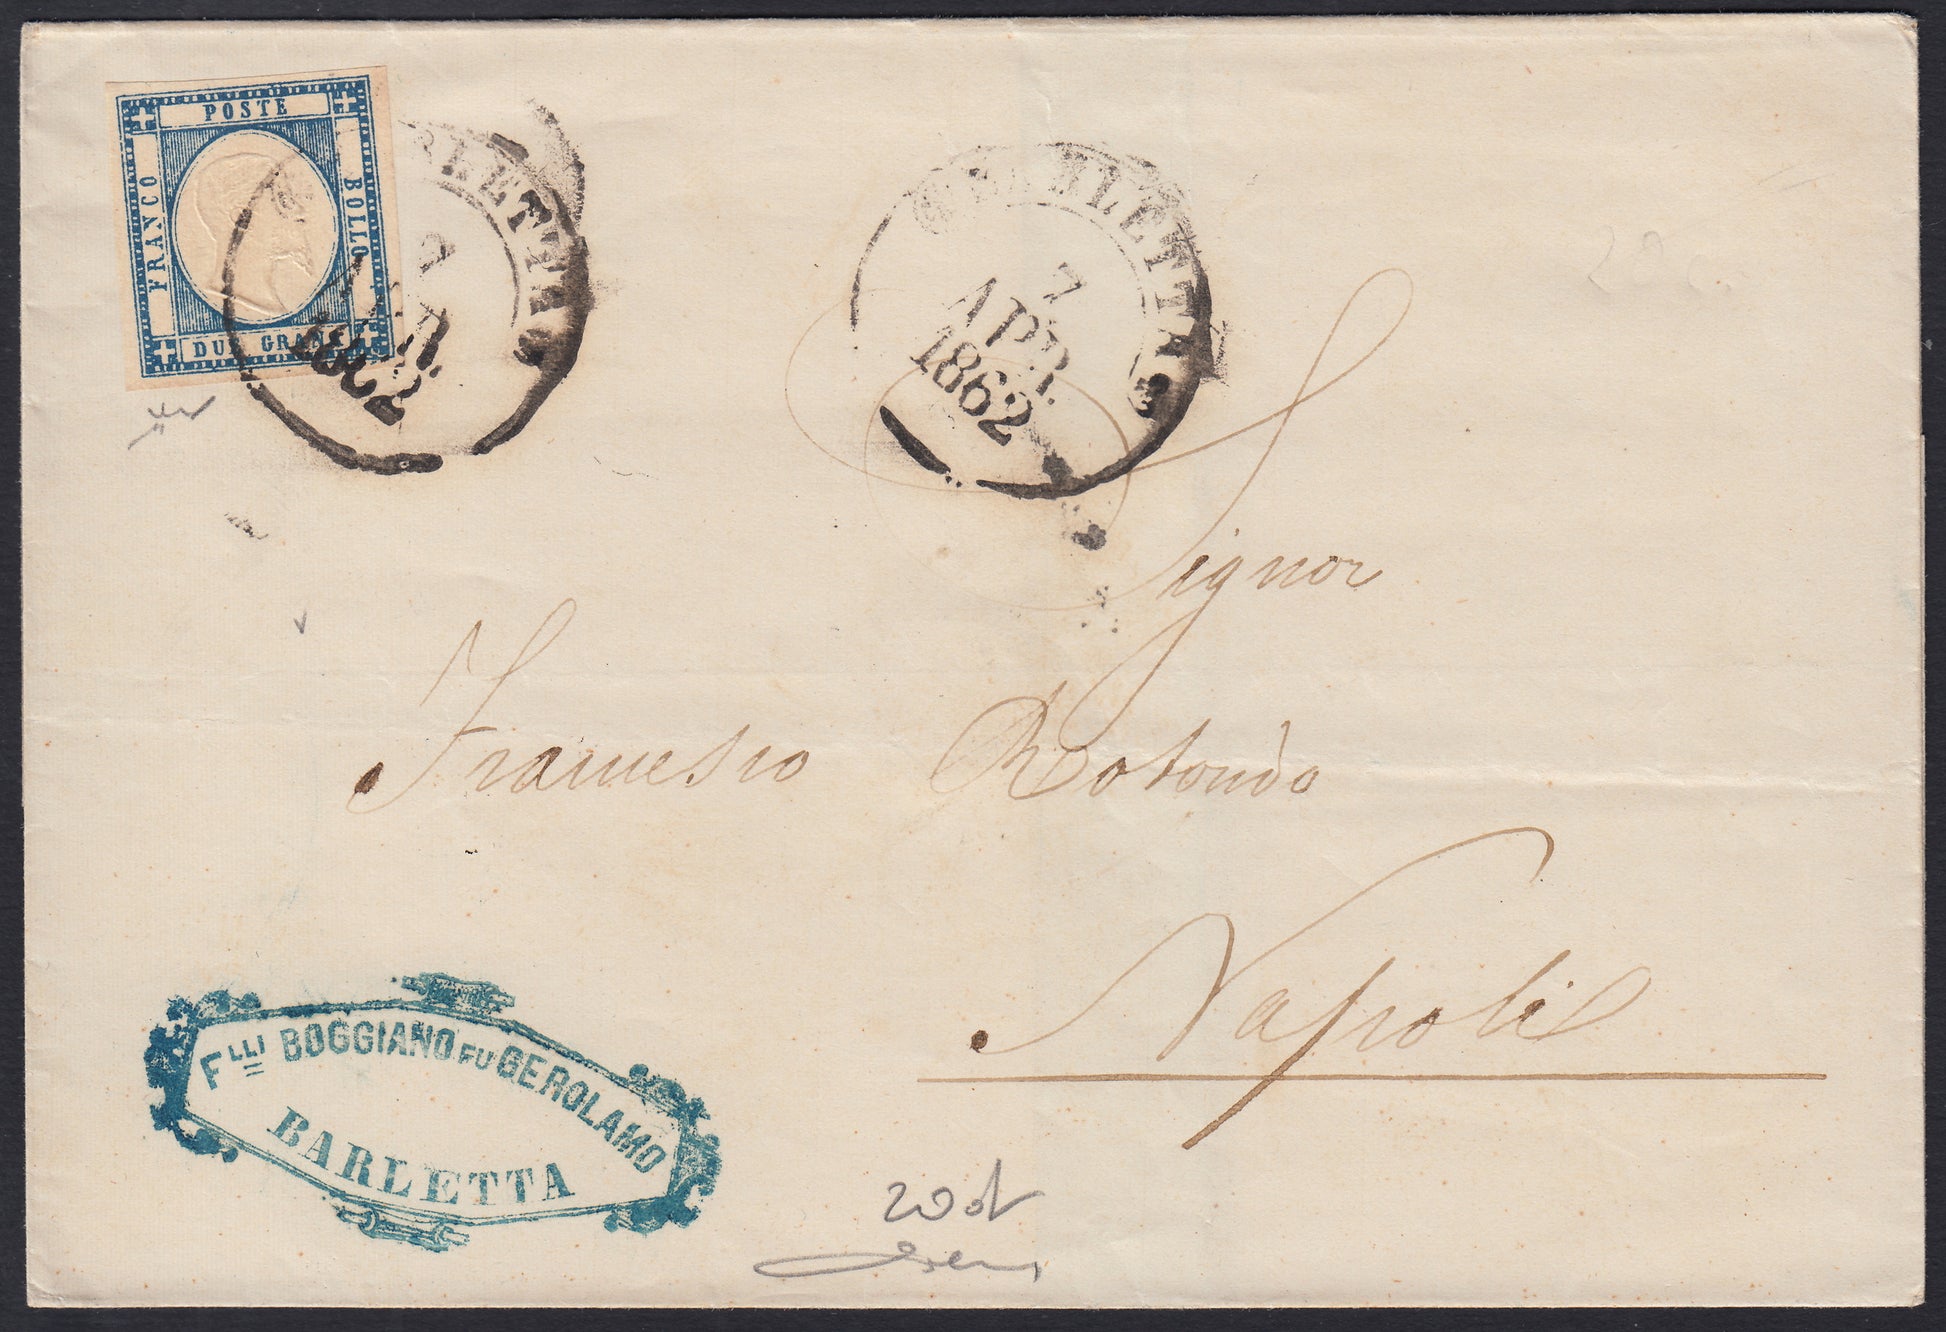 POSTE
FRANCO
BOLLO
DUE GRANA
BARLETTA
7
APR.
1862
BARLETTA
7
APR.
1862
20 c.
Signor
Francesco Rotondo
Napoli
Flli BOGGIANO FU GEROLAMO
BARLETTA
20 d